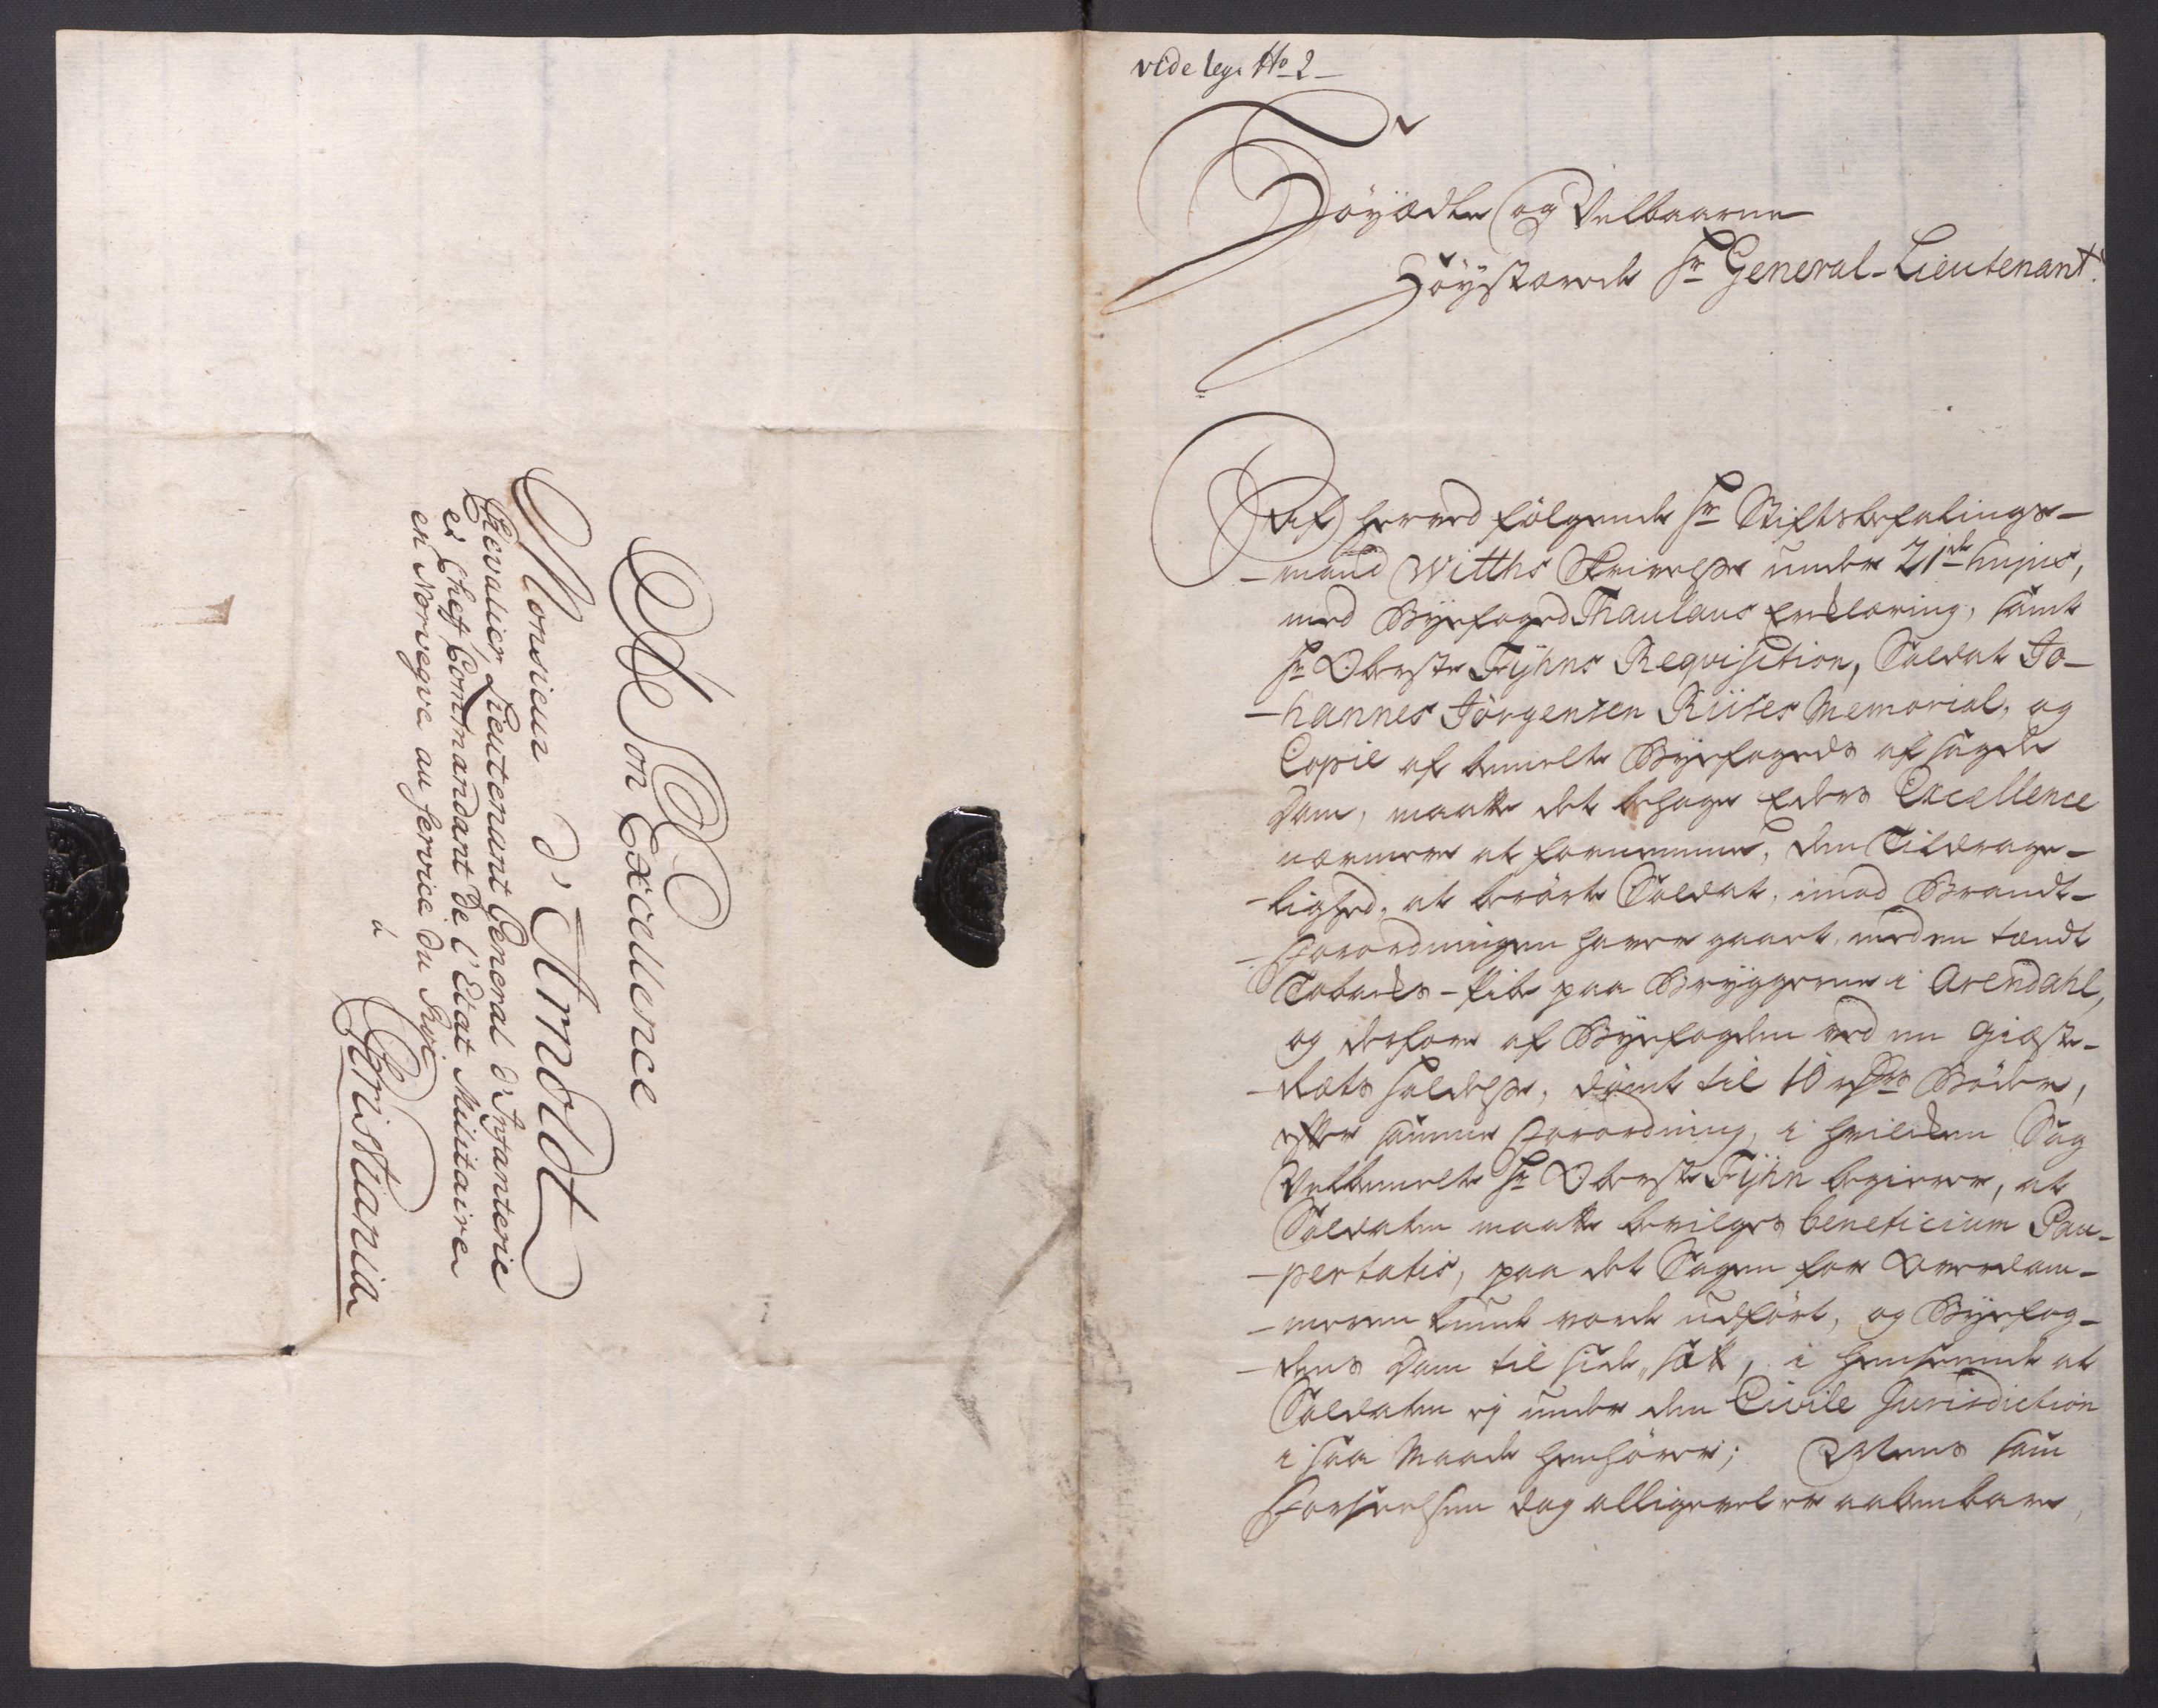 A Son Excellence
Monsieur d'Arnoldt
Chevalier, Lieutenant General d'Infanterie
et Chef Commandant de l'Etat Militaire
en Norvegve au service du Roy
à
Christiania
vide lege No 2
Höyædle og Velbaarne
Höystærede Hr General-Lieutenant!
Af herved følgende Hr Stiftsbefalings-
-mand Witths Skrivelse under 21de hujus,
med Byefoged Thaulaus Erklæring, samt
Hr Oberste Fÿhns Reqvisition, Soldat Jo-
-hannes Jörgensen Riises Memorial, og
Copie af bemelte Byefogeds afsagde
Dom, maatte det behage Eders Excellence
nærmere at fornemme, den Tildrage-
-lighed, at berörte Soldat, imod Brandt-
-Forordningen haver gaaet med en tændt
Tobaks-Pibe paa Bryggerne i Arendahl,
og derfore af Byefogden ved en Giæste-
-Rets holdelse, dömt til 10 rdrs Böder,
efter samme Forordning, i hvilken Sag
Velbemelte Hr Oberste Fÿhn begierer, at
Soldaten maatte bevilges beneficium Pau-
-pertatis, paa det Sagen for Overdom-
-meren kunde vorde udfört, og Byefog-
-dens Dom til side satt, i henseende at
Soldaten ej under den Civile Jurisdiction
i saa Maade henhörer; Mens som
Forseelsen dog alligevel er aabenbare